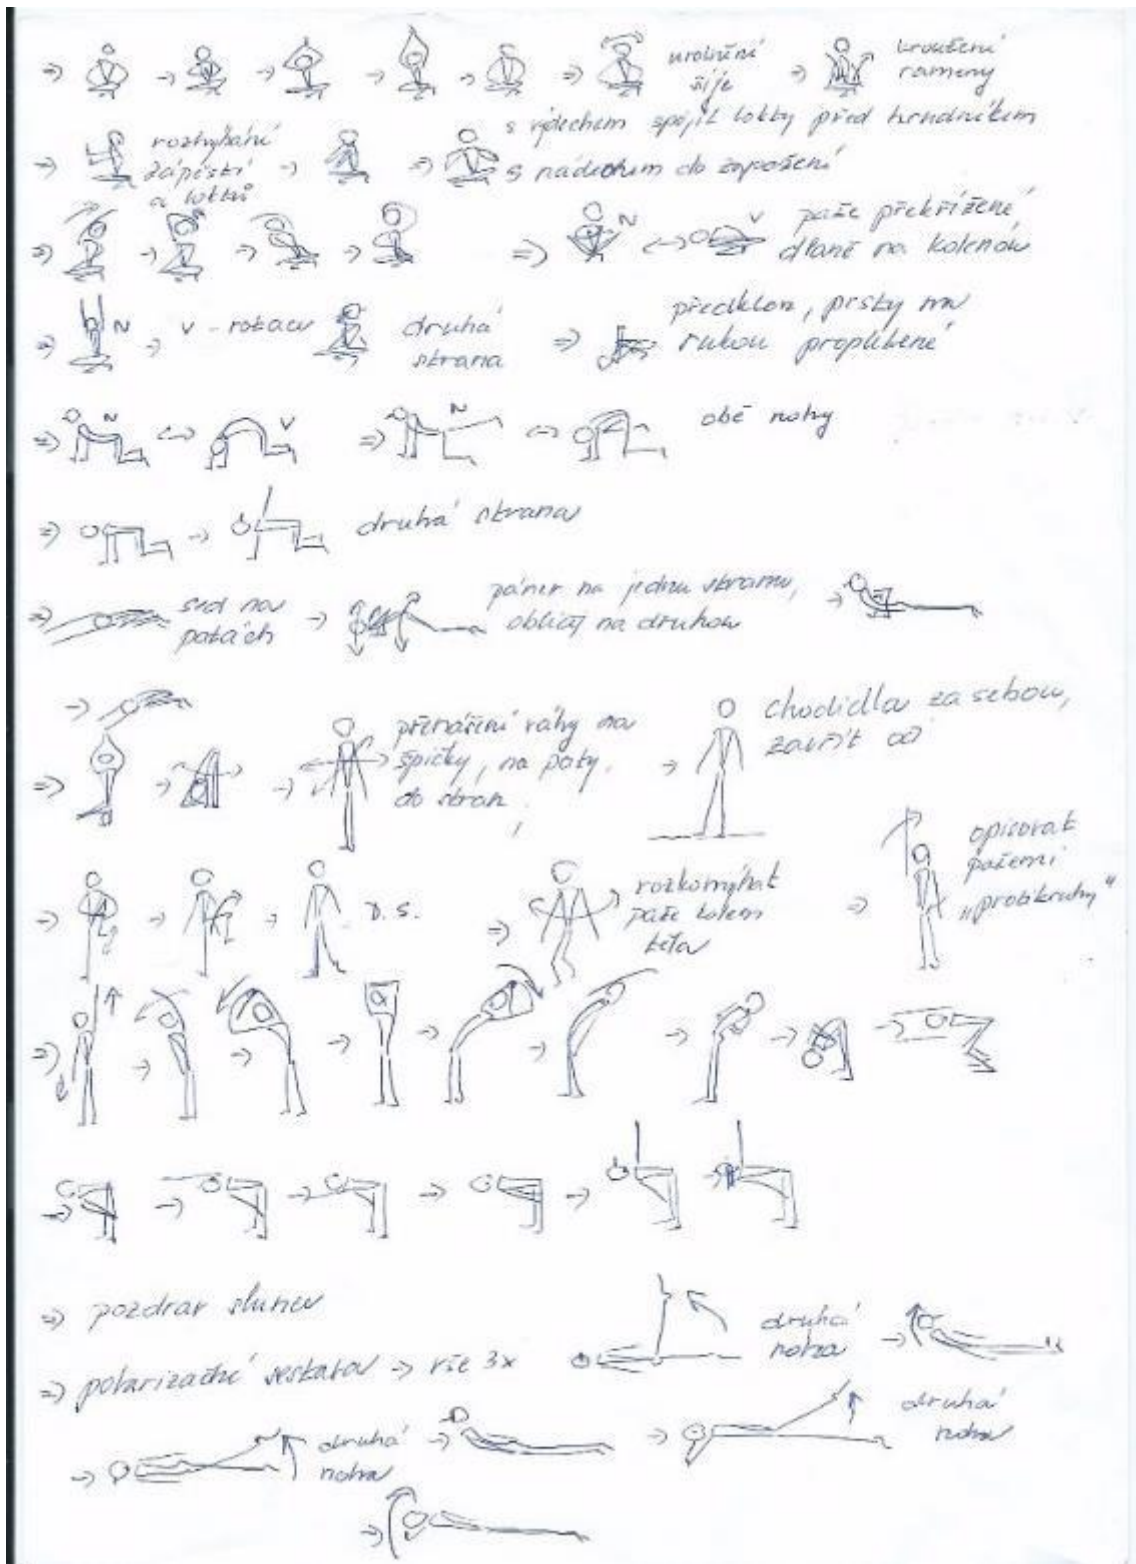 uvolnění
šíje
kroužení
rameny
s výdechem spojit lokty před hrudníkem
rozhýbání
zápěstí
a loktů
s nádechem do zapažení
N
V
paže překřížené,
dlaně na kolenou
N
V - rotace
druhá
strana
předklon, prsty na
rukou propletené
N
V
N
obě nohy
druhá strana
sed na
patách
pánev na jednu stranu,
obličej na druhou
přenášení váhy na
špičky, na paty,
do stran,
chodidla za sebou,
zavřít
D.S.
rozkomýhat
paže kolem
těla
opisovat
pažemi
"protikruhy"
pozdrav slunci
polarizační sestava → vše 3x
druhá
noha
druhá
noha
druhá
noha